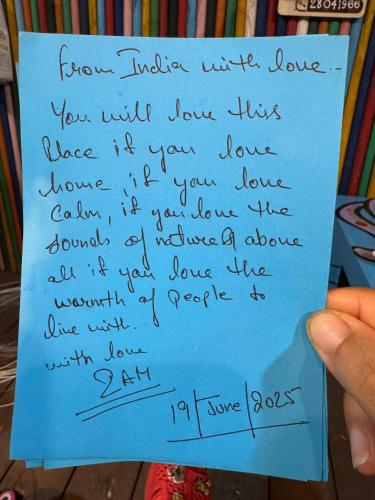 28041966
From India with love...
You will love this
Place if you love
home, if you love
Calm, if you love the
sounds of nature & above
all if you love the
warmth of people to
live with.
with love
2AM
19/June/2025